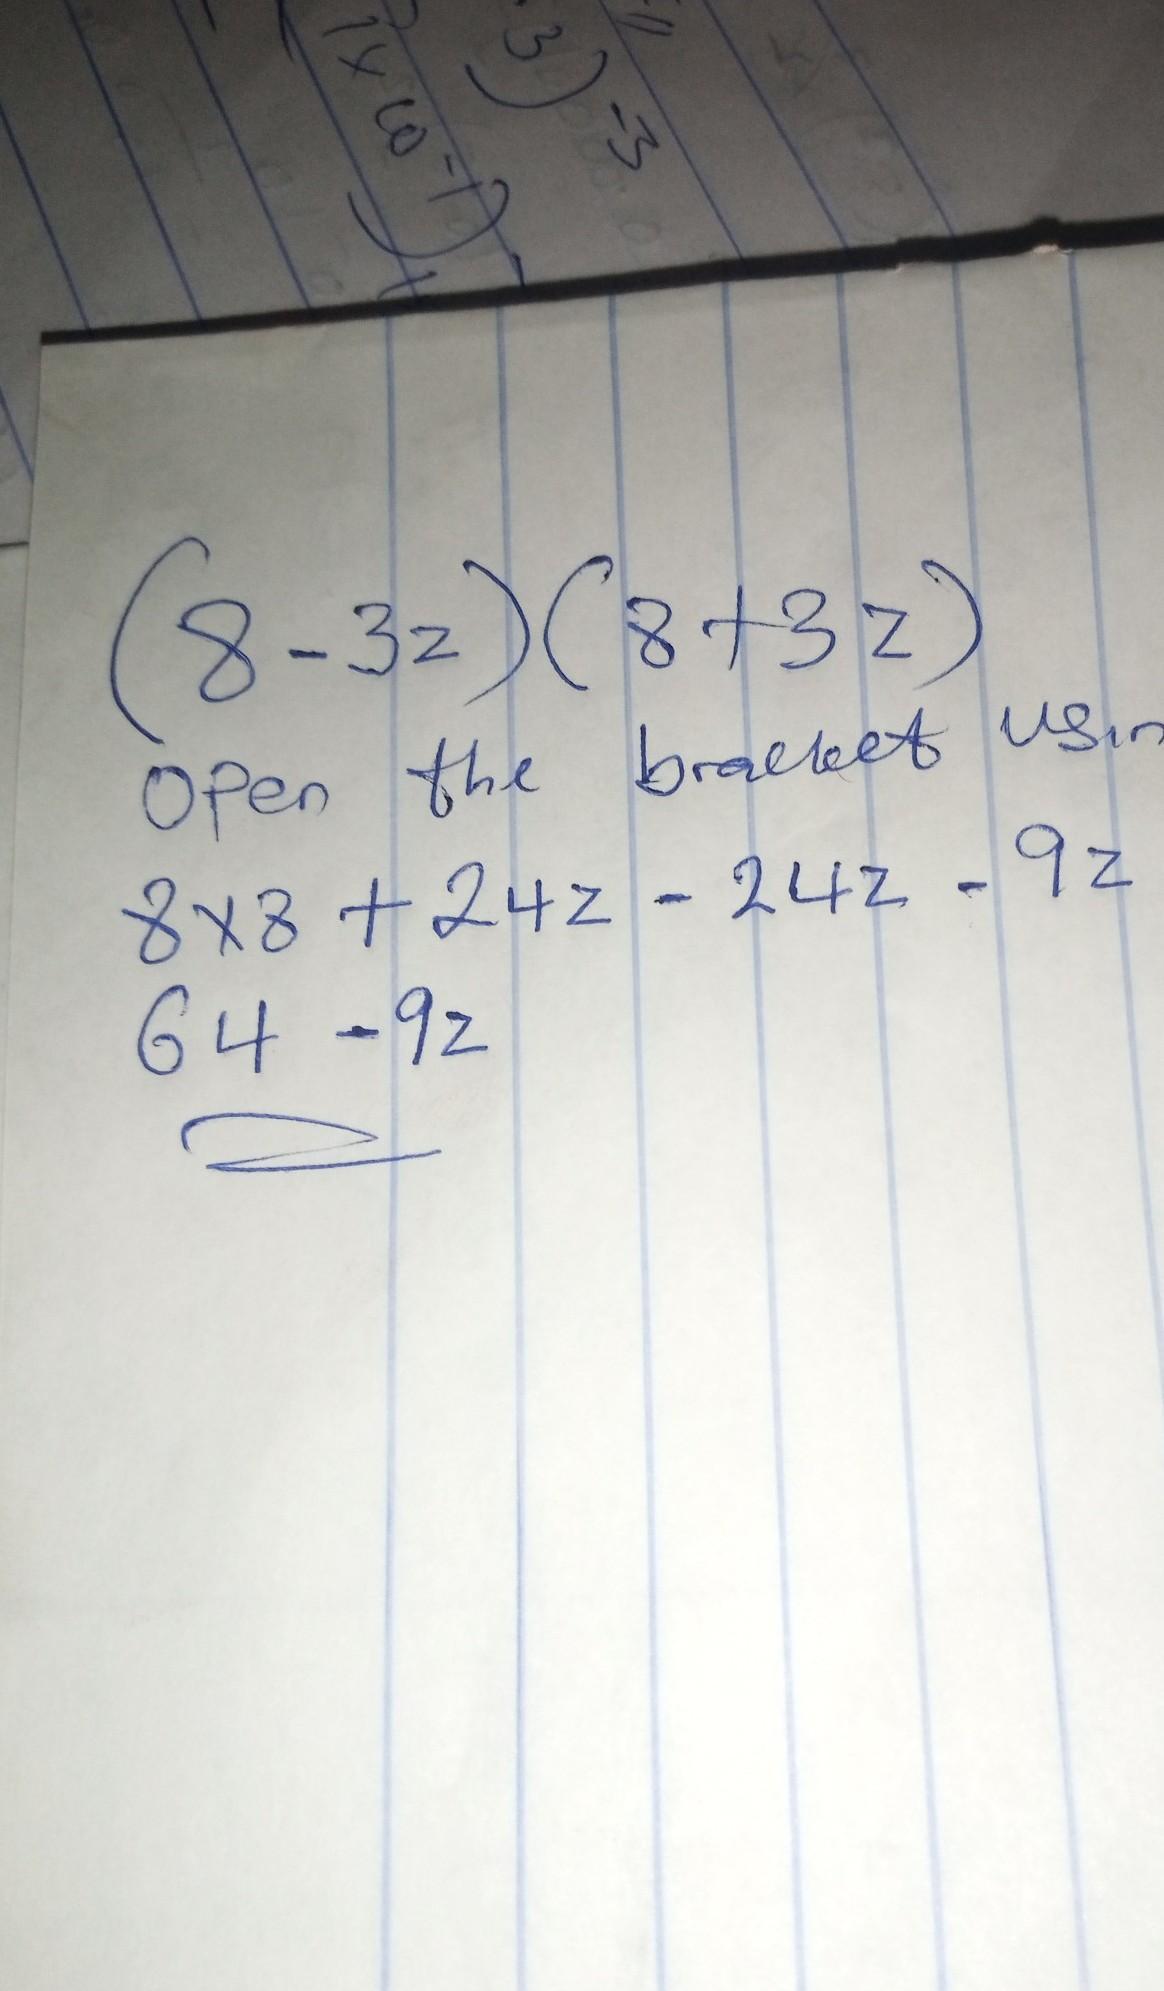 1x10⁻¹)
3)⁻³
(8-3z)(8+3z)
Open the bracket usin
8x8 + 24z - 24z - 9z
64 - 9z